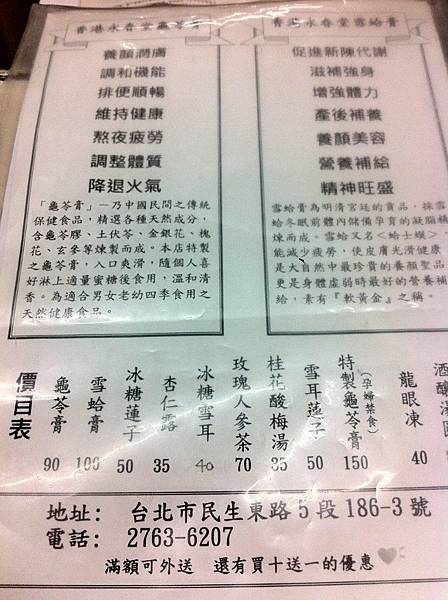 香港永春堂龜苓膏
養顏潤膚
調和機能
排便順暢
維持健康
熬夜疲勞
調整體質
降退火氣
「龜苓膏」—乃中國民間之傳統
保健食品，精選各種天然成分，
含龜苓膠、土伏苓、金銀花、槐
花、玄參等煉製而成。本店特製
之龜苓膏，入口爽滑，隨個人喜
好淋上適量蜜糖後食用，溫和清
香。為適合男女老幼四季食用之
天然健康食品。
香港永春堂雪蛤膏
促進新陳代謝
滋補強身
增強體力
產後補養
養顏美容
營養補給
精神旺盛
雪蛤膏為明清宮廷的貢品，採雪
蛤冬眠前體內儲備孕育的凝脂精
煉而成。雪蛤又名<蛤士蟆>，
能減少疲勞，使皮膚光滑健康
是大自然中最珍貴的養顏聖品
更是身體虛弱時最好的營養補
給，素有『軟黃金』之稱。
價目表
龜苓膏 90
雪蛤膏 100
冰糖蓮子 50
杏仁露 35
冰糖雪耳 40
玫瑰人參茶 70
桂花酸梅湯 35
雪耳蓮子 50
特製龜苓膏(孕婦禁食) 150
龍眼凍 40
酒釀湯圓
地址： 台北市民生東路5段186-3號
電話： 2763-6207
滿額可外送 還有買十送一的優惠